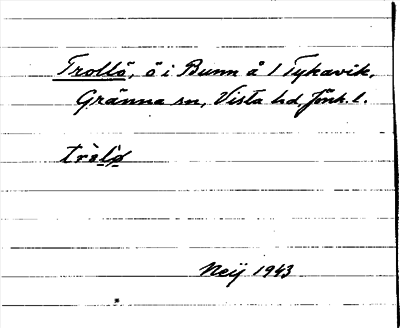 Trollö, ö i Bunn å 1 Tykavik,
Gränna sn, Vista hd, Jönk. l.
Neij 1943